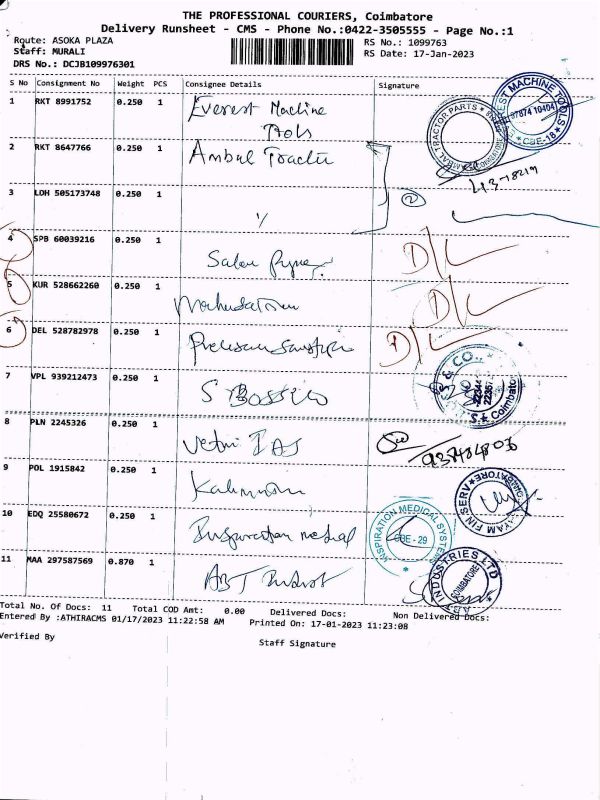 THE PROFESSIONAL COURIERS, Coimbatore
Delivery Runsheet - CMS - Phone No.:0422-3505555 - Page No.:1
Route: ASOKA PLAZA
RS No.: 1099763
Staff: MURALI
RS Date: 17-Jan-2023
DRS No.: DCJB109976301
S No Consignment No Weight PCS Consignee Details Signature
1 RKT 8991752 0.250 1 Everest Machine
Tools
2 RKT 8647766 0.250 1 Ambal Tractor
3 LOH 505173748 0.250 1 2
4 SPB 60039216 0.250 1 D/L
5 KUR 528662260 0.250 1 D/L
6 DEL 528782978 0.250 1 D/L
7 VPL 939212473 0.250 1 S
8 PLN 2245326 0.250 1 Vetri IAS
9 POL 1915842 0.250 1
10 EDQ 25580672 0.250 1 Inspiration medical
INSPIRATION MEDICAL SYSTEMS
CBE - 29
11 MAA 297587569 0.870 1 ABT
INDUSTRIES LTD
COIMBATORE
Total No. Of Docs: 11 Total COD Amt: 0.00 Delivered Docs: Non Delivered Docs:
Entered By :ATHIRACMS 01/17/2023 11:22:58 AM Printed On: 17-01-2023 11:23:08
Verified By
Staff Signature